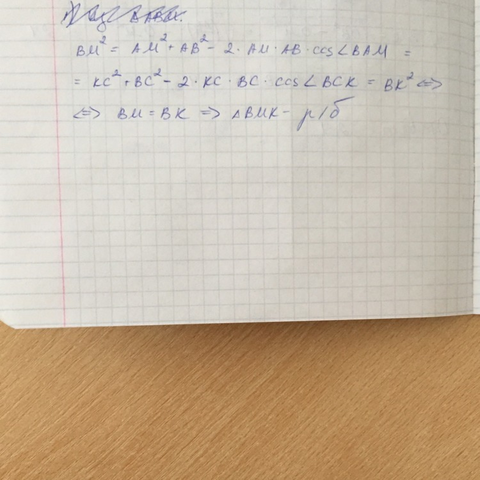 BM² = AM² + AB² - 2 · AM · AB · cos∠BAM =
= KC² + BC² - 2 · KC · BC · cos∠BCK = BK² ⇔
⇔ BM = BK ⇒ ΔBMK - р/б